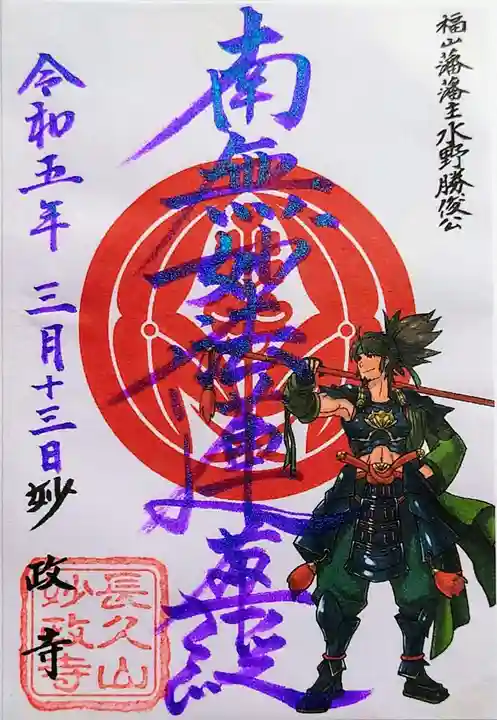 福山藩藩主水野勝俊公
南無妙法蓮華経
令和五年 三月十三日 妙政寺
長久山
妙政寺